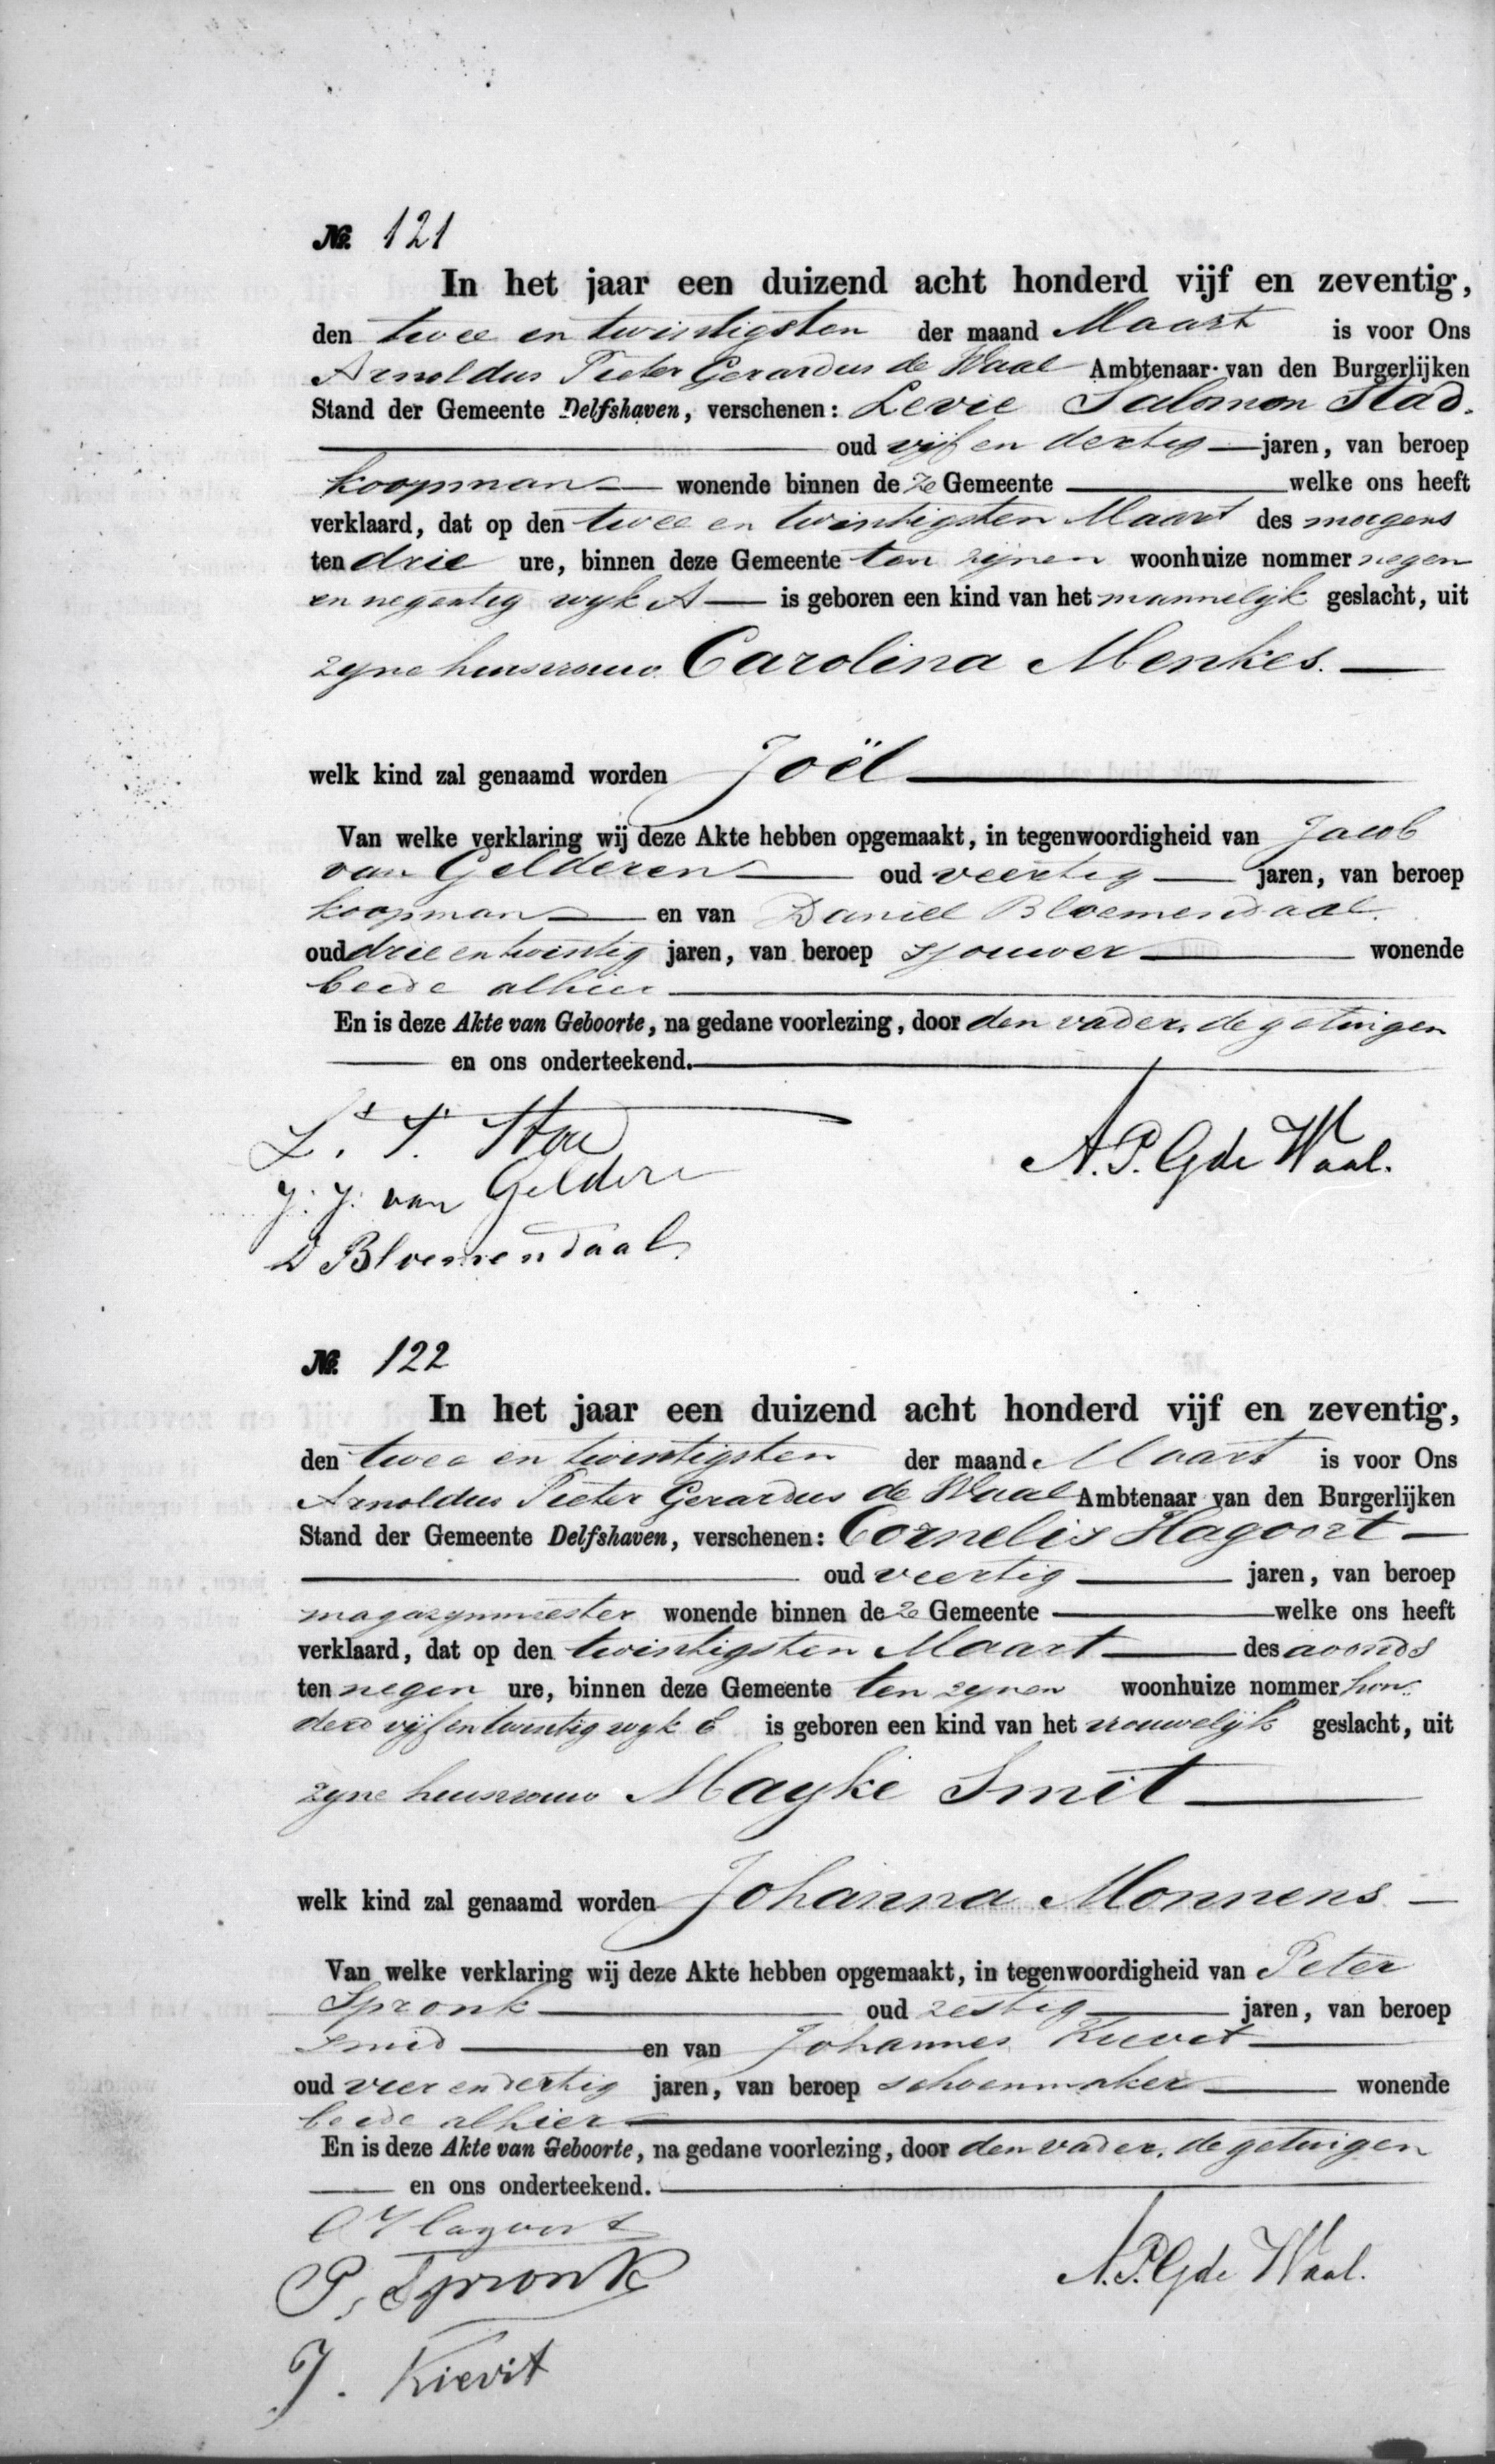 No. 121
In het jaar een duizend acht honderd vijf en zeventig,
den twee en twintigsten der maand Maart is voor Ons
Arnoldus Pieter Gerardus de Waal Ambtenaar van den Burgerlijken
Stand der Gemeente Delfshaven, verschenen: Levie Salomon Stad.
oud vijf en dertig jaren, van beroep
koopman wonende binnen deze Gemeente welke ons heeft
verklaard, dat op den twee en twintigsten Maart des morgens
ten drie ure, binnen deze Gemeente ten zijnen woonhuize nommer negen
en negentig wyk A is geboren een kind van het mannelijk geslacht, uit
zyne huisvrouw Carolina Menkes.
welk kind zal genaamd worden Joël
Van welke verklaring wij deze Akte hebben opgemaakt, in tegenwoordigheid van Jacob
van Gelderen oud veertig jaren, van beroep
koopman en van Daniel Bloemendaal
oud drie en twintig jaren, van beroep sjouwer wonende
beide alhier
En is deze Akte van Geboorte, na gedane voorlezing, door den vader, de getuigen
en ons onderteekend.
L. S. Stad
A. P. G de Waal.
J. J. van Gelderen
D Bloemendaal
No. 122
In het jaar een duizend acht honderd vijf en zeventig,
den twee en twintigsten der maand Maart is voor Ons
Arnoldus Pieter Gerardus de Waal Ambtenaar van den Burgerlijken
Stand der Gemeente Delfshaven, verschenen: Cornelis Hagoort
oud veertig jaren, van beroep
magazynmeester wonende binnen deze Gemeente welke ons heeft
verklaard, dat op den twintigsten Maart des avonds
ten negen ure, binnen deze Gemeente ten zynen woonhuize nommer hon-
derd vijf en twintig wyk C is geboren een kind van het vrouwelijk geslacht, uit
zyne huisvrouw Mayke Smit
welk kind zal genaamd worden Johanna Monnens
Van welke verklaring wij deze Akte hebben opgemaakt, in tegenwoordigheid van Peter
Spronk oud zestig jaren, van beroep
smid en van Johannes Kievit
oud vier en dertig jaren, van beroep schoenmaker wonende
beide alhier
En is deze Akte van Geboorte, na gedane voorlezing, door den vader, de getuigen
en ons onderteekend.
C Hagoort
A. P. G de Waal.
P. Spronk
J. Kievit